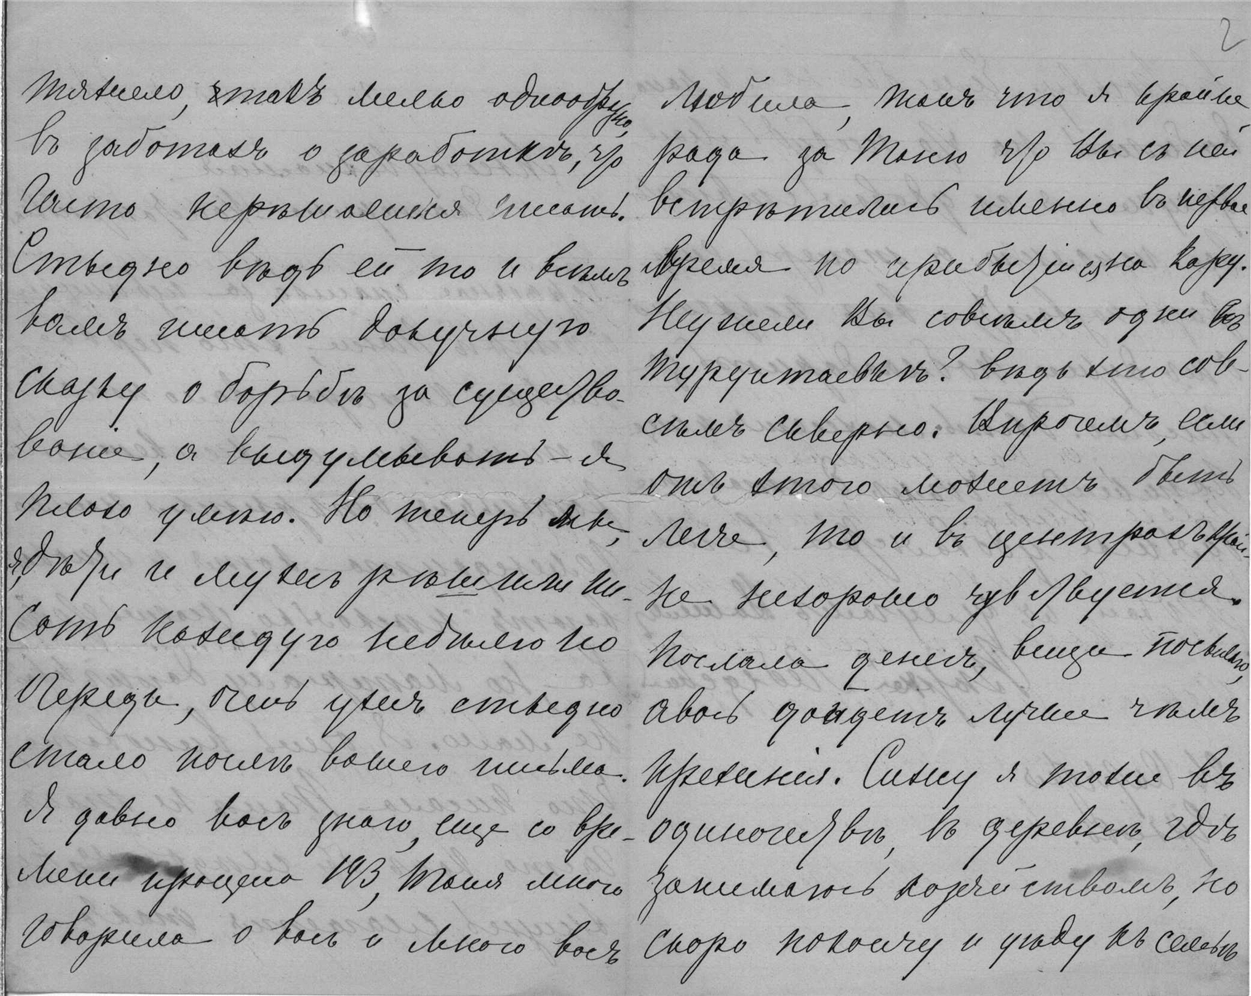 тяжело, такъ мелко однообразно,
въ заботахъ о заработкѣ, что
часто не рѣшаешься писать.
Стыдно вѣдь ей то и всѣмъ
вамъ писать докучную
сказку о борьбѣ за существо-
ваніе, а выдумывать – я
плохо умѣю. Но теперь мы,
я, дѣти и мужъ рѣшили пи-
сать каждую недѣлю по
очереди, очень ужъ стыдно
стало послѣ вашего письма.
Я давно васъ знаю, еще со вре-
мени процесса 193, Таня много
говорила о васъ и много васъ
2
любила, такъ что я крайне
рада за Таню что Вы съ ней
встрѣтились именно въ первое
время по прибытіи на Кару.
Неужели Вы совсѣмъ одни въ
Турунтаевѣ? вѣдь это сов-
сѣмъ скверно. Впрочемъ, если
отъ этого можетъ быть
легче, то и въ центрахъ край-
не нехорошо чувствуется.
Послала денегъ, вещи посылаю,
авось дойдетъ лучше чѣмъ
прежнія. Сижу я тоже въ
одиночествѣ, въ деревнѣ, гдѣ
занимаюсь хозяйствомъ, но
скоро покончу и уѣду къ семьѣ